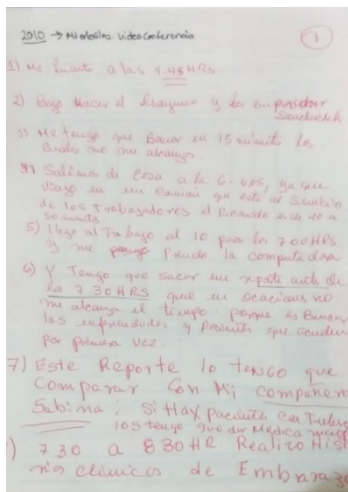 2010 → Miercoles. Videoconferencia
1
1) Me levanto a las 4.45 HRs
2) Bajo Hacer el desayuno y los emparedar
Sandwich
3) Me tengo que Banar en 15 minutos los
cuales no me alcanza
4) Salimos de casa a la 6-
viajo en un camion que esta al Servicio
de los Trabajadores el Recorrido es de 40 a
50 minutos
5) Llego al Trabajo al 10 para las 7.00 HRs
y me pongo Prendo la computadora
6) Y Tengo que sacar un reporte antes de
las 7.30 HRS que en ocaciones no
me alcanza el tiempo porque es Buscar
los enfermedades y Pacientes que acuden
por primera vez.
7) Este Reporte lo tengo que
Comparar con Mi compañera
Sabina; Si Hay paciente con
los tengo que dar Medica
) 7 30 a 8.30 HR Realizo His
rias clinicas de Embaraza